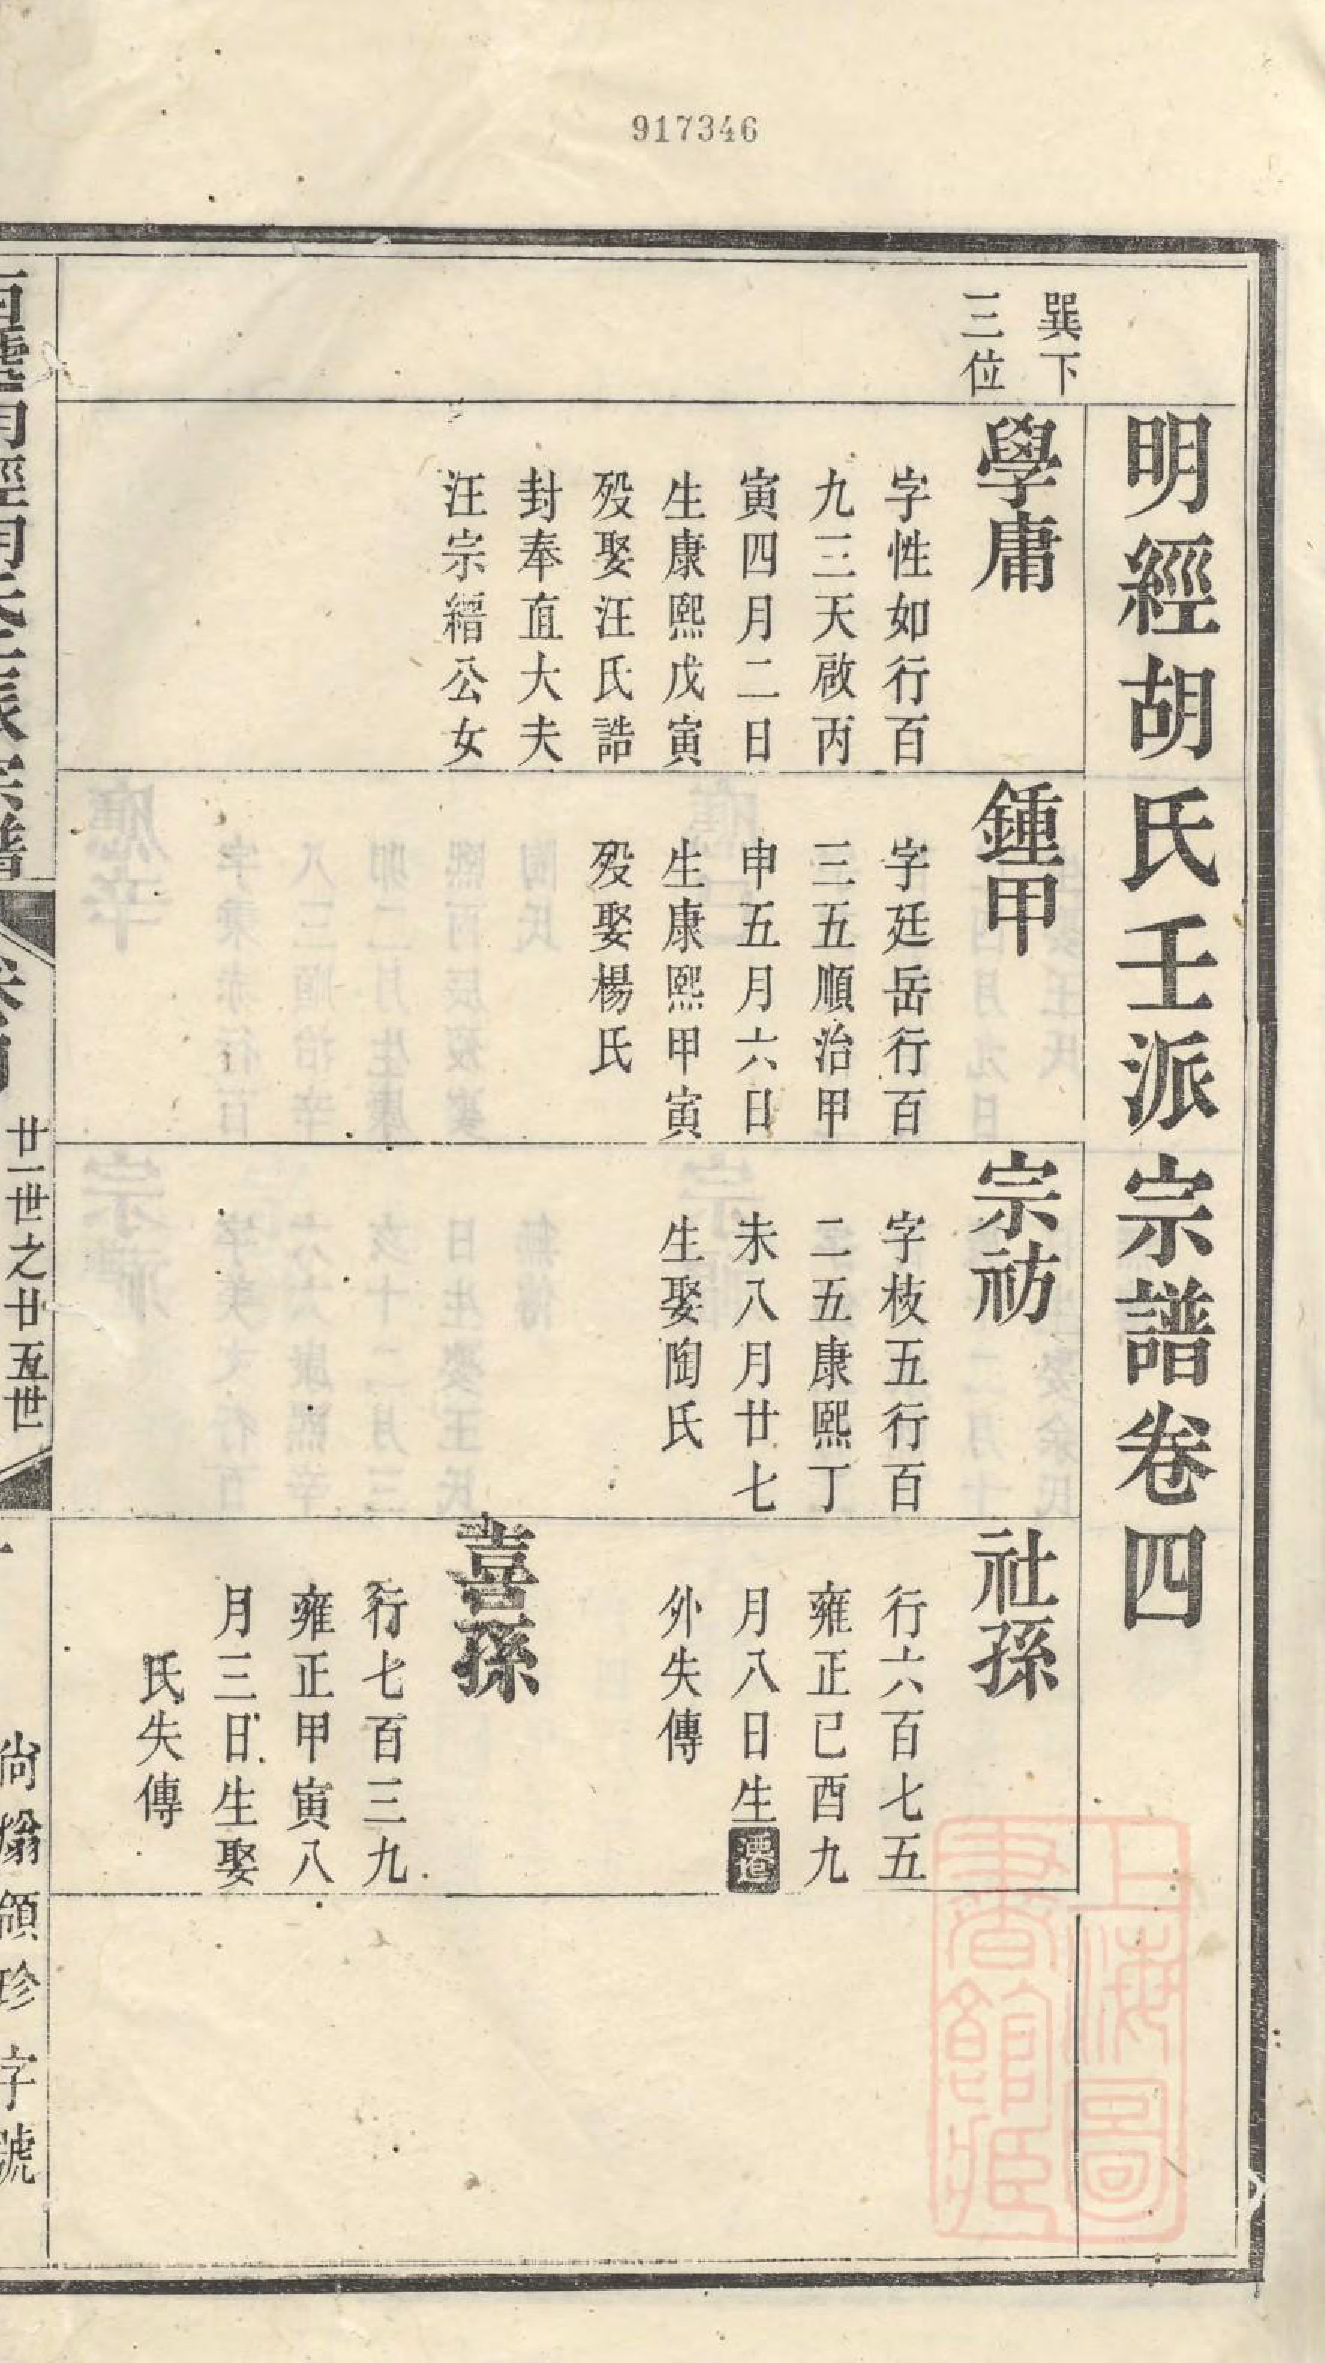 917346
明經胡氏壬派宗譜卷四
巽下
三位
學庸
字性如行百
九三天啟丙
寅四月二日
生康熙戊寅
歿娶汪氏誥
封奉直大夫
汪宗縉公女
鍾甲
字廷岳行百
三五順治甲
申五月六日
生康熙甲寅
歿娶楊氏
宗祊
字枝五行百
二五康熙丁
未八月廿七
生娶陶氏
社孫
行六百七五
雍正已酉九
月八日生遷
外失傳
喜孫
行七百三九
雍正甲寅八
月三日生娶
氏失傳
明經胡氏壬派宗譜
卷四
廿一世之廿五世
尚 領珍字號
上海圖書館藏